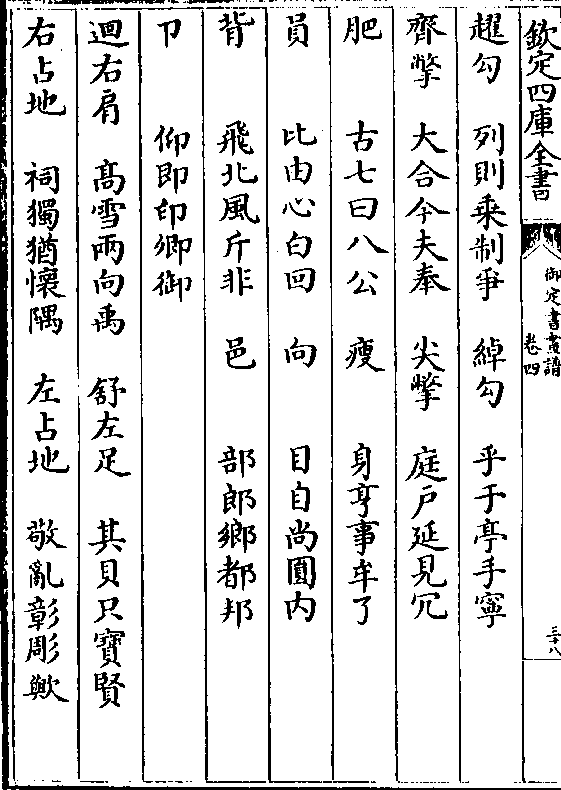 欽定四庫全書
御定書畫譜
卷四
三十八
趯勾　列則乗制爭　綽勾　乎于亭手寧
齊撆　大合今夫奉　尖撆　庭户延見冗
肥　古七曰八公　瘦　身亨事年了
員　比由心白回　向　目自尚圓内
背　飛北風斤非　邑　部郎鄉都邦
卩　仰即印卿御
迴右肩　髙雪兩向禹　舒左足　其貝只寶賢
右占地　祠獨猶懷隅　左占地　敬亂彰彫歟